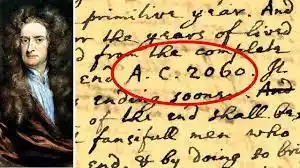 primitive year. And
the years of lived
from the complete
end A. C. 2060. It
ending sooner. And
of the end shall be
fancifull men who
end & by doing so bring